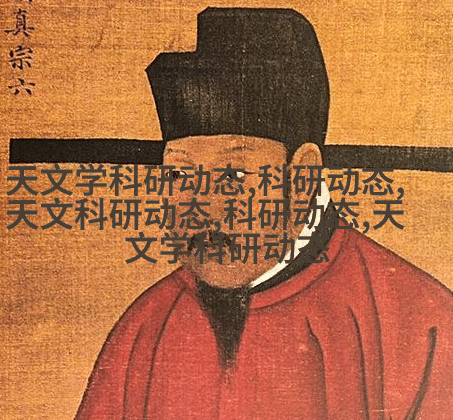 真宗六
天文学科研动态,科研动态,
天文科研动态,科研动态,天
文学科研动态